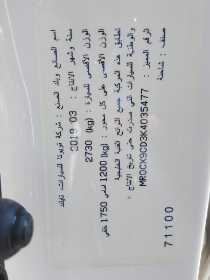 اسم الصانع وبلد الصنع : شركة تويوتا للسيارات، تايلاند
سنة وشهر الإنتاج : 2019 03
الوزن الأقصى للسيارة : (kg) 2730
الوزن الأقصى على كل محور : (kg) 1200 أمامي 1750 خلفي
تطابق هذه المركبة جميع اللوائح الفنية الخليجية
والوطنية للسيارات التي صدرت حتى تاريخ الإنتاج .
الرقم المميز : MR0CX9CD3K4035477
صنف : شاحنة
71100